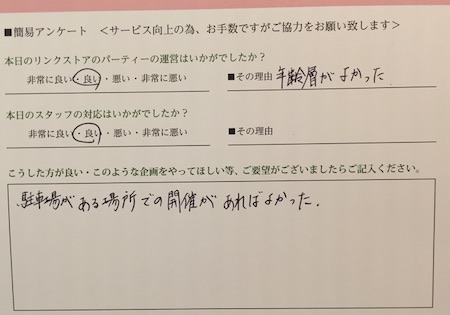 ■簡易アンケート <サービス向上の為、お手数ですがご協力をお願い致します>
本日のリンクストアのパーティーの運営はいかがでしたか?
非常に良い・良い・悪い・非常に悪い ■その理由 年齢層がよかった
本日のスタッフの対応はいかがでしたか?
非常に良い・良い・悪い・非常に悪い ■その理由
こうした方が良い・このような企画をやってほしい等、ご要望がございましたらご記入ください。
駐車場がある場所での開催があればよかった.